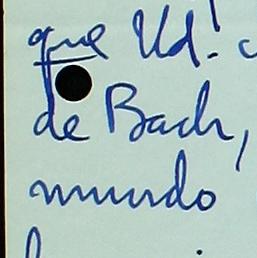 que Ud.!
de Bach,
mundo